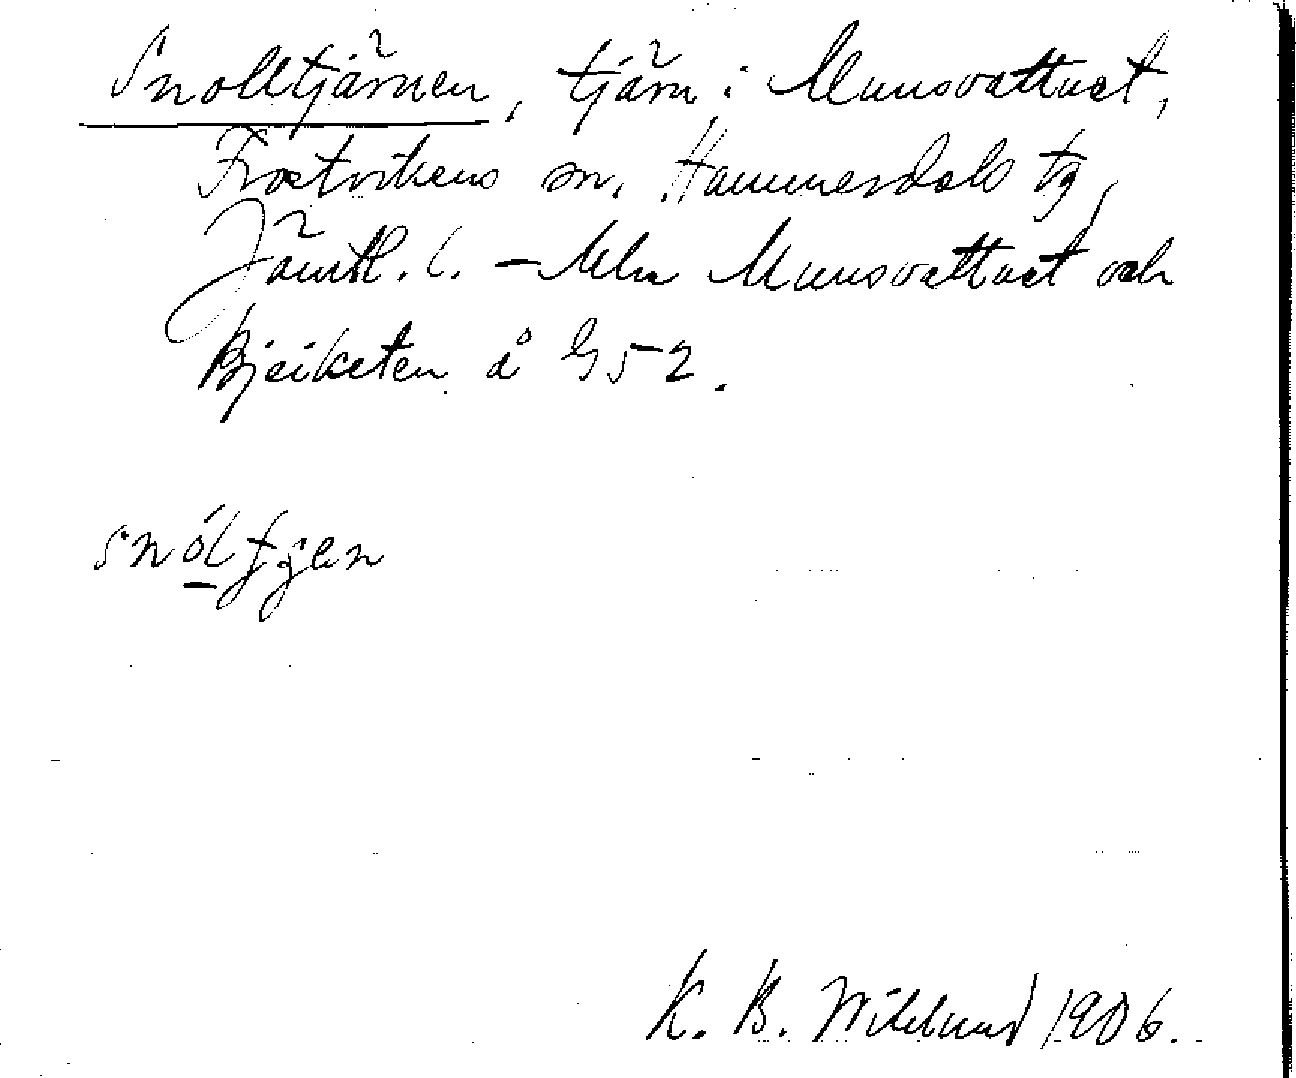 Snolltjärnen, tjärn i Munsvattnet,
Frostvikens sn. Hammerdals tg,
Jämtl. l. – Mln Munsvattnet och
Bjeiketen å G52.
snóltjen
K. B. Wiklund 1906.